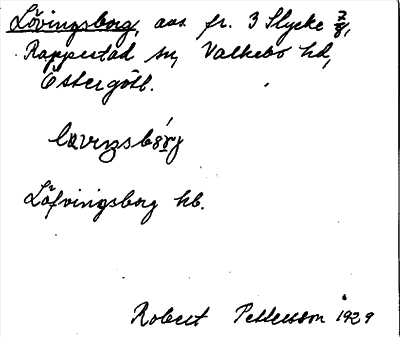 Lövingsborg, avs. fr. 3 Stycke 7/8,
Rappestad sn, Valkebo hd,
Östergötl.
Löfvingsborg hb.
Robert Pettersson 1929